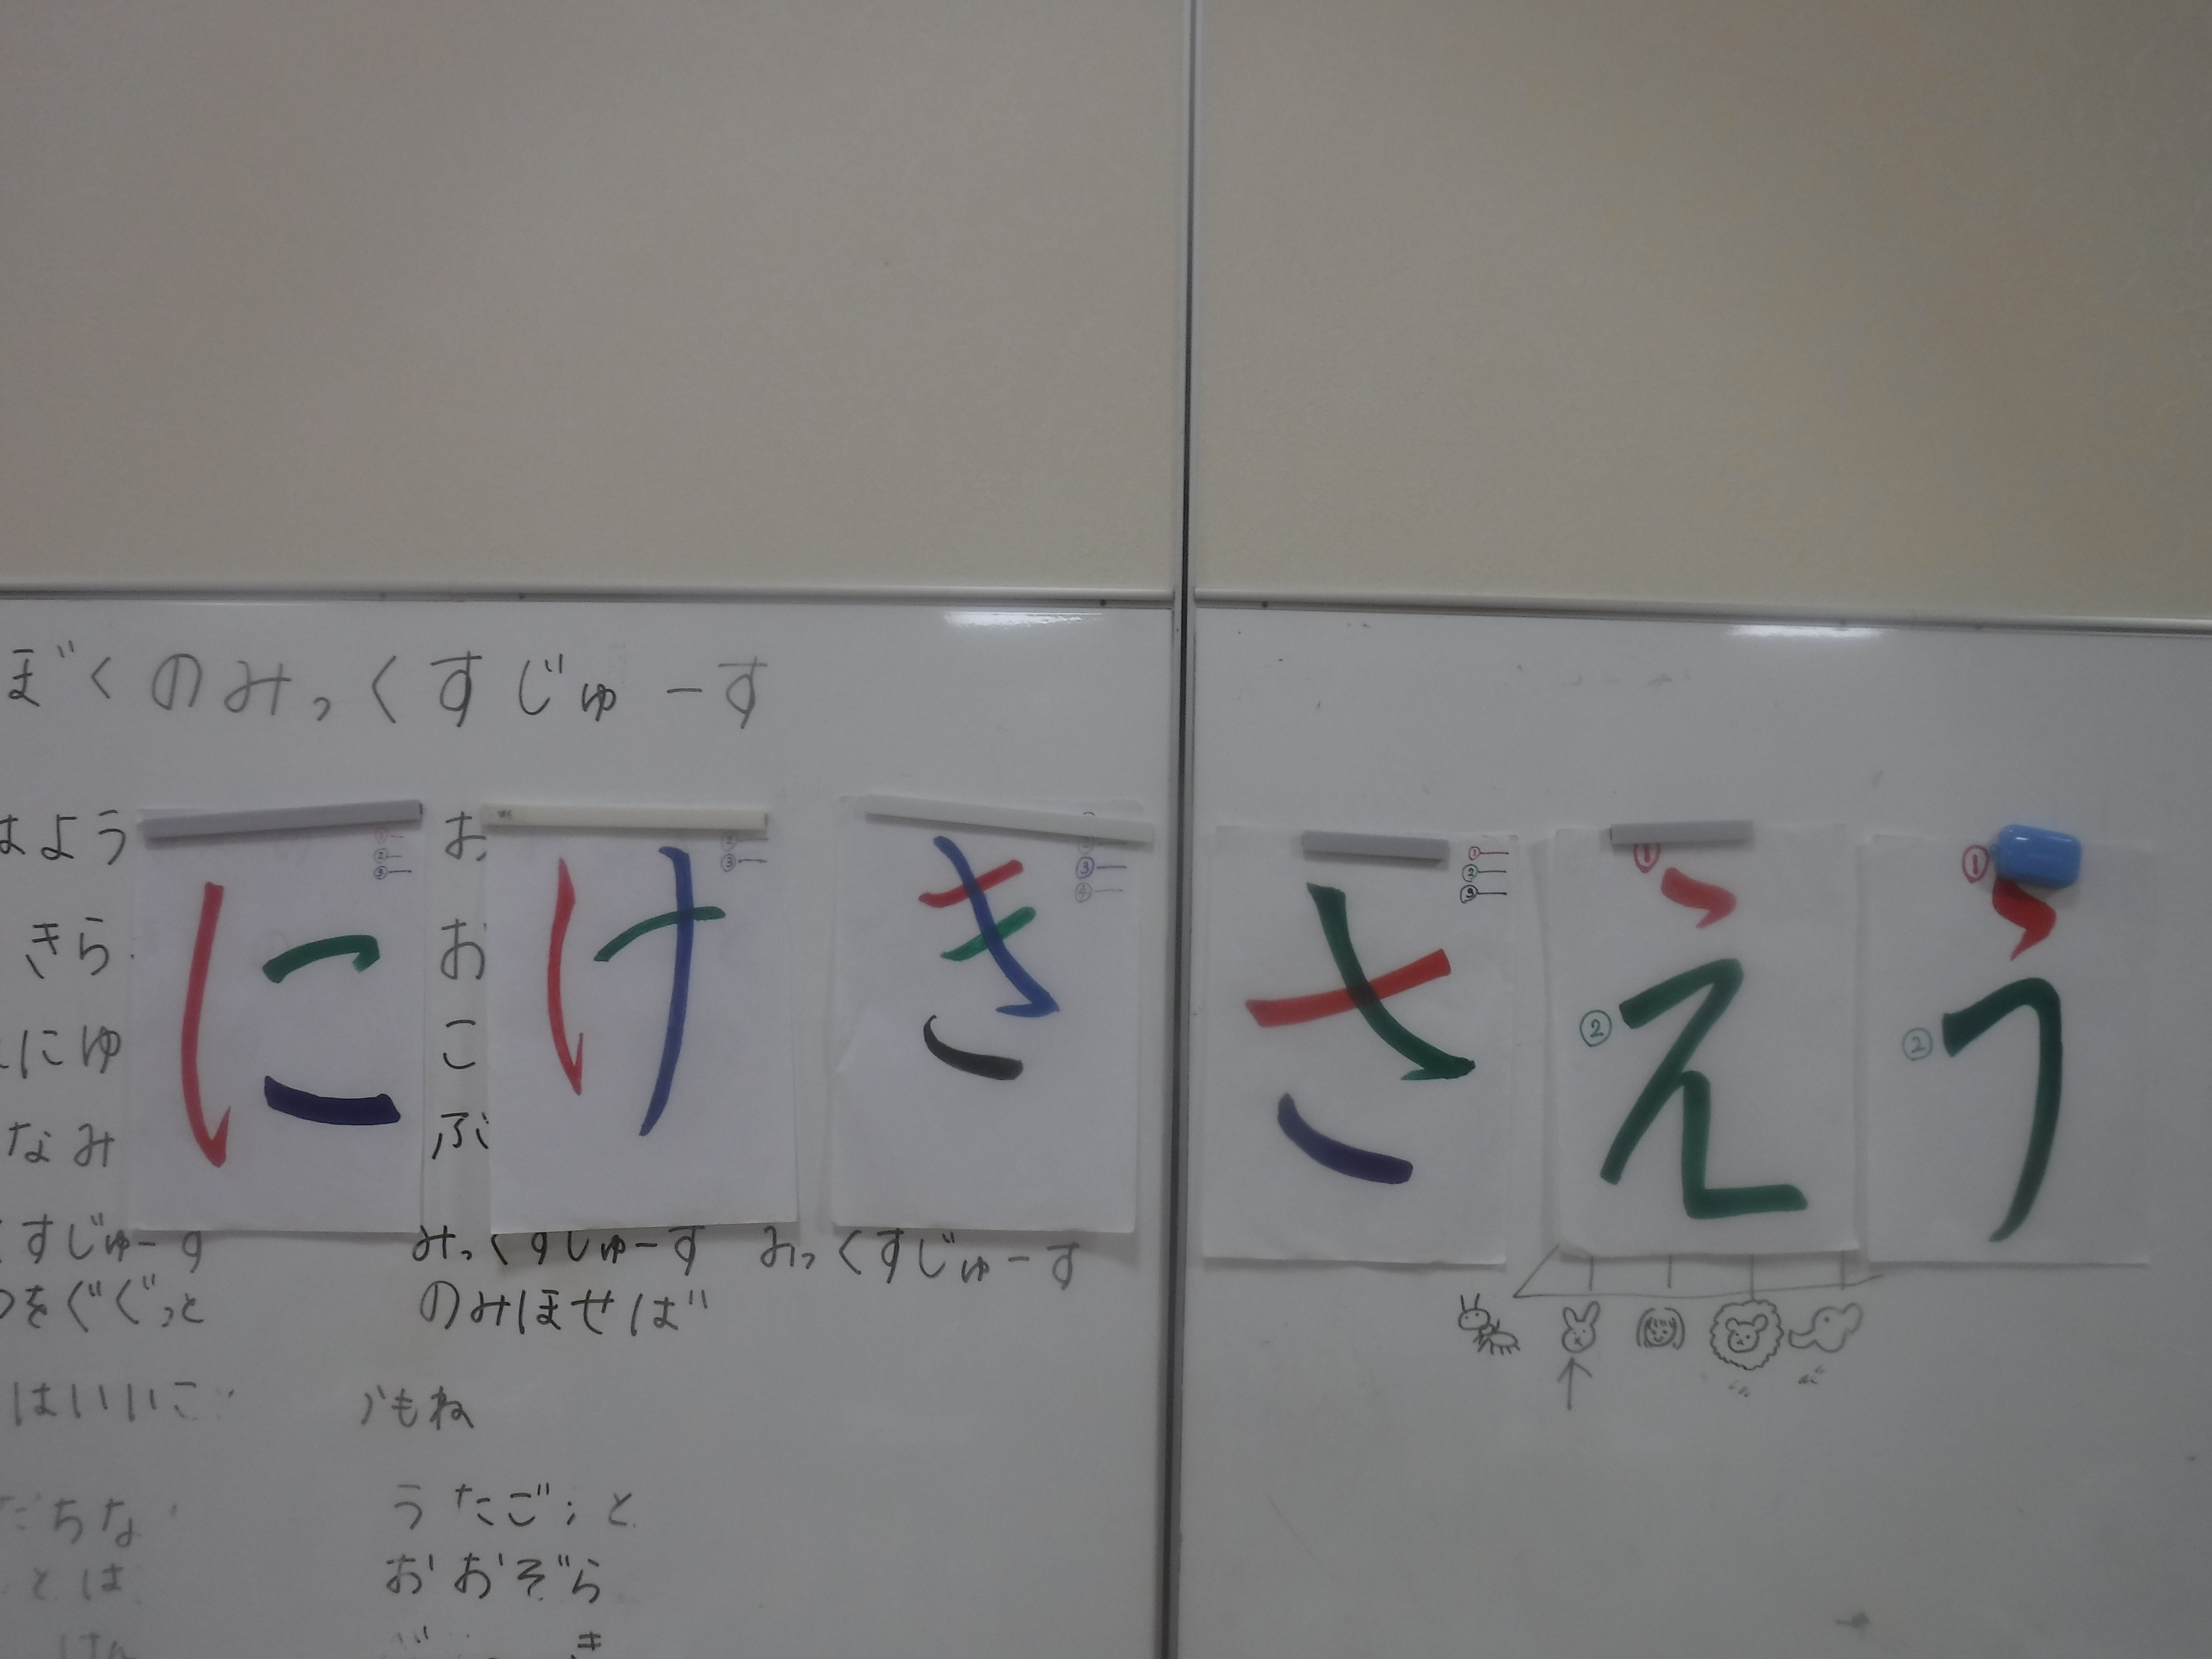 ぼくのみっくすじゅーす
はよう
お
に
け
き
さ
え
う
① ② ③
② ③
③ ④
① ② ③
① ②
① ②
きら
お
にゆ
こ
なみ
ぶ
すじゅーす みっくすじゅーす みっくすじゅーす
をぐぐっと のみほせば
はいいこ もね
ちな うたご と
とは おおぞら
き